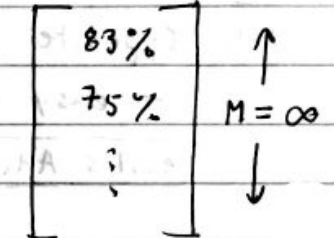 83%
75% M = ∞
⋮